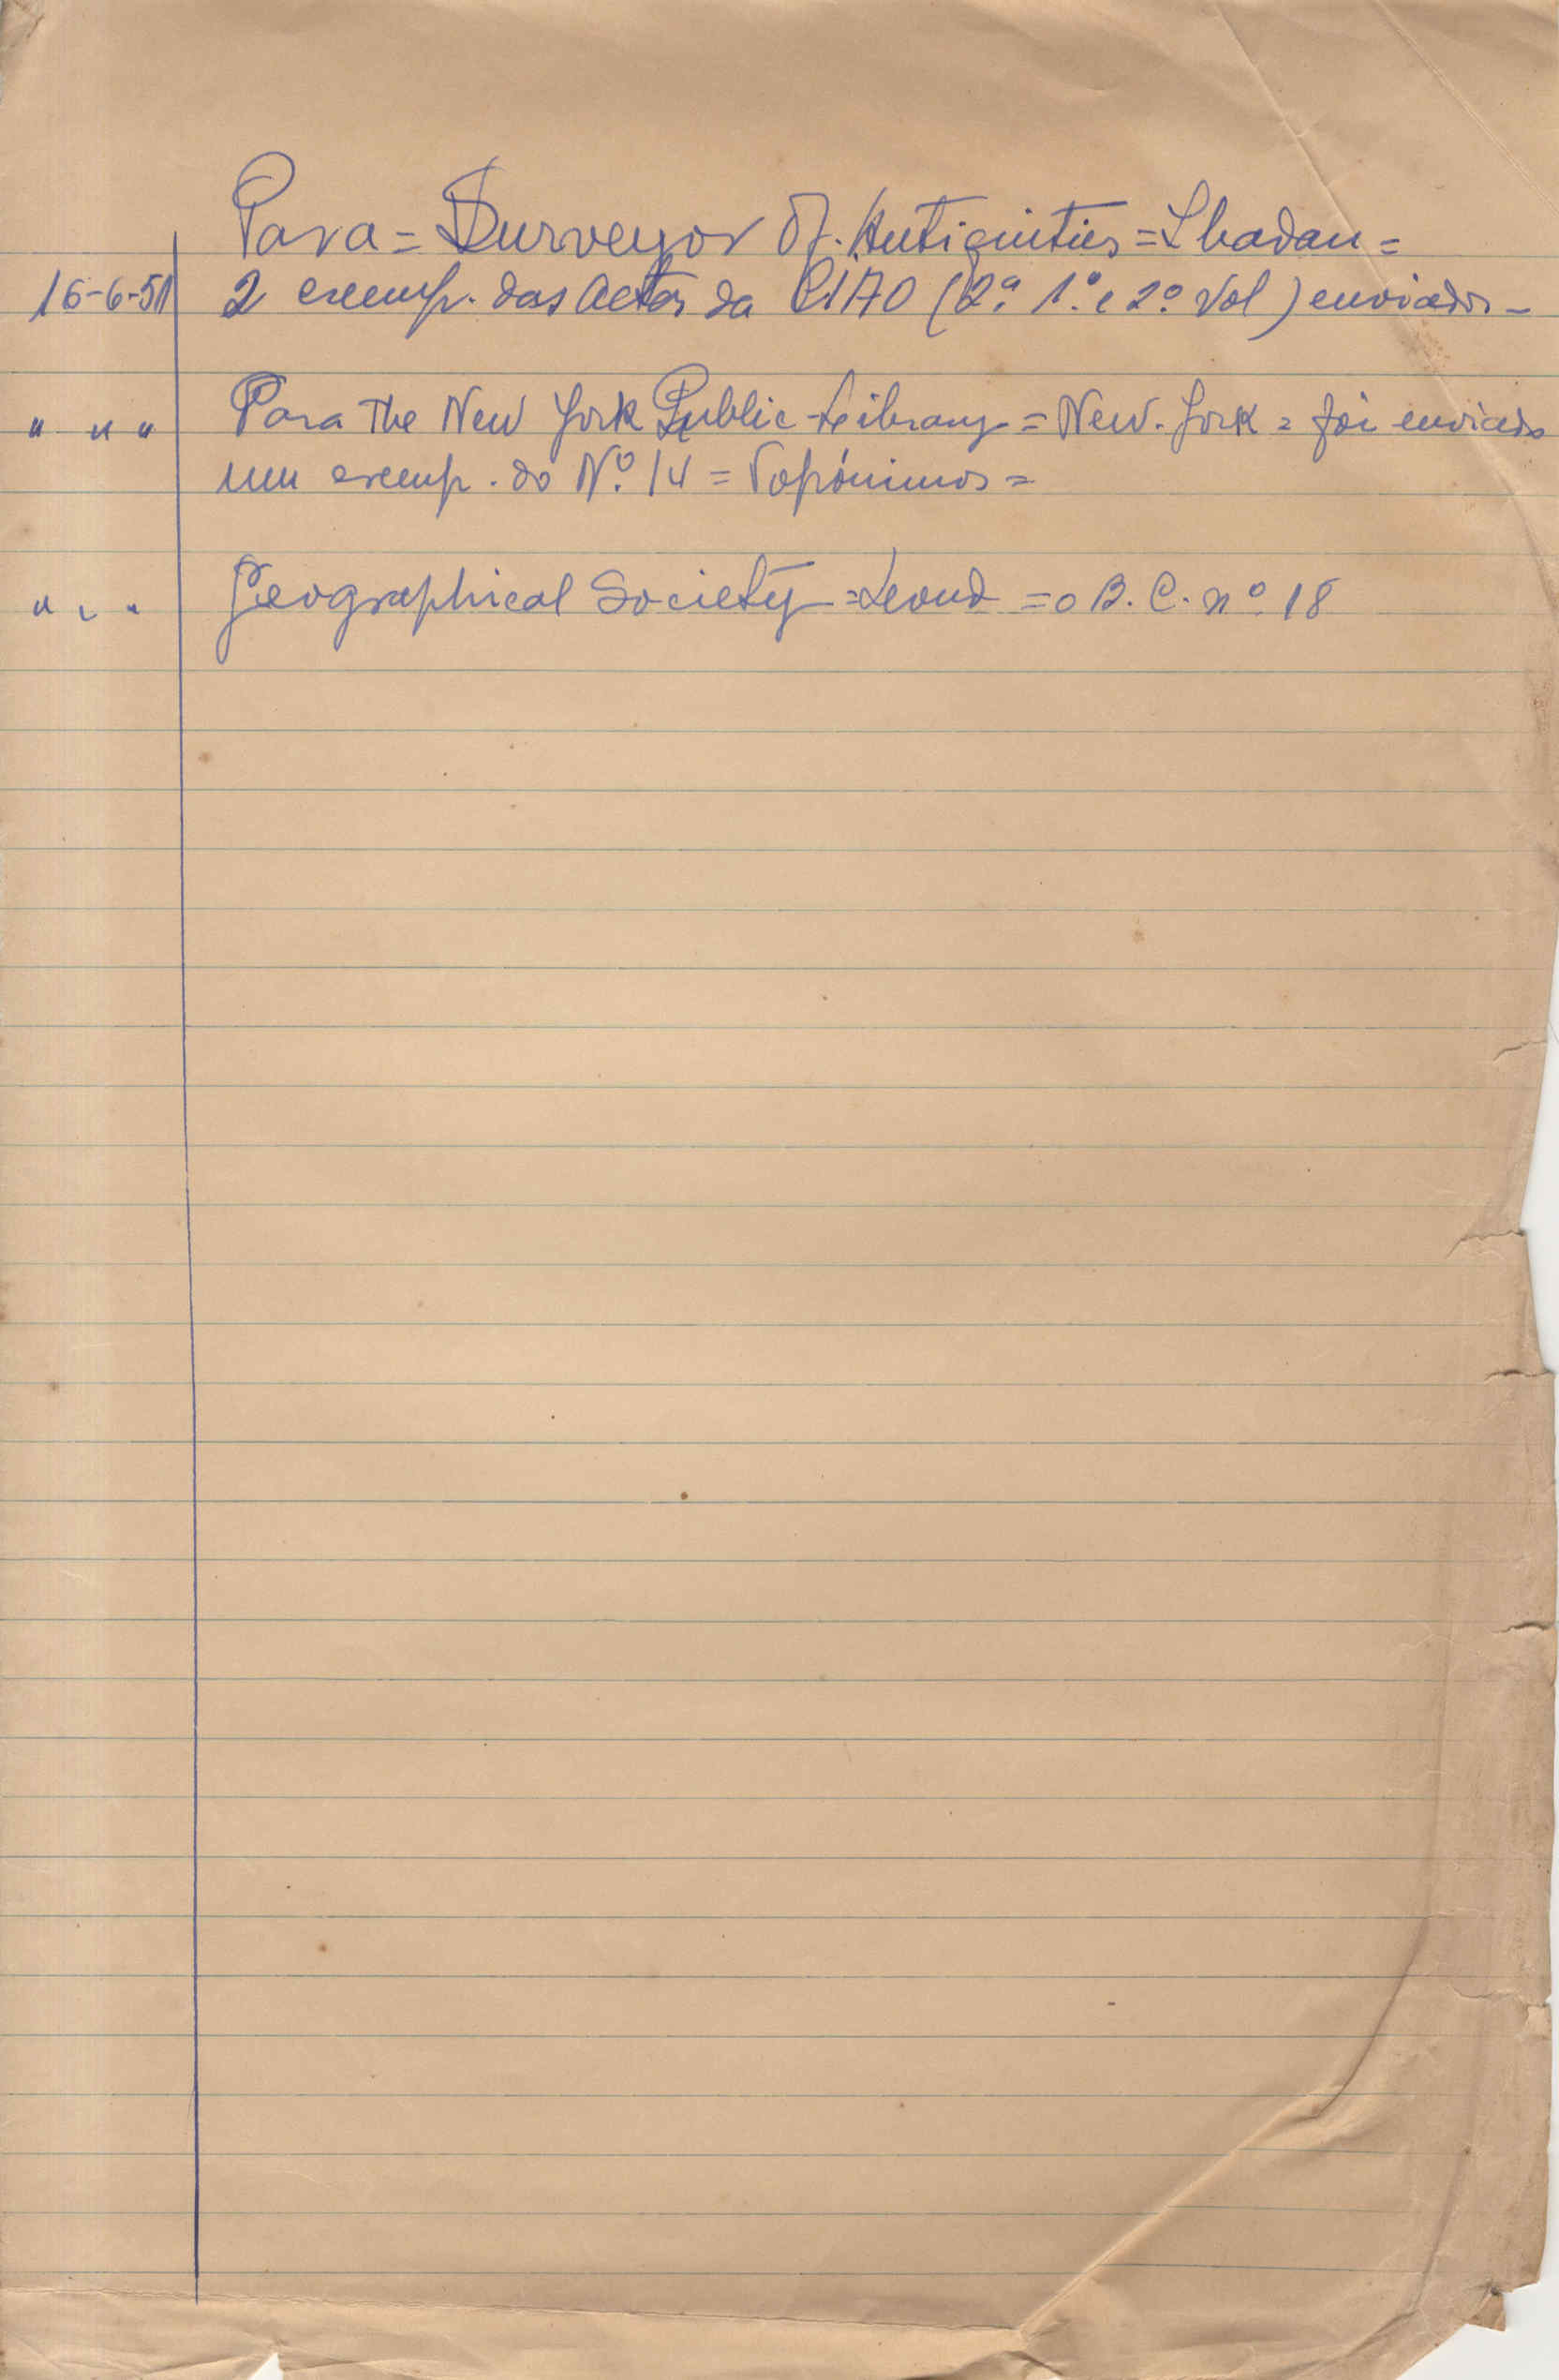 Para = Surveyor Of. Antiquities = Ibadan =
16-6-51 2 exemp. das Actas da CIAO (2ª 1º e 2º Vol) enviados -
" " " Para The New York Public Library = New. York = foi enviado
um exemp. do Nº 14 = Topónimos =
" " " Geographical Society = = o B. C. nº 18